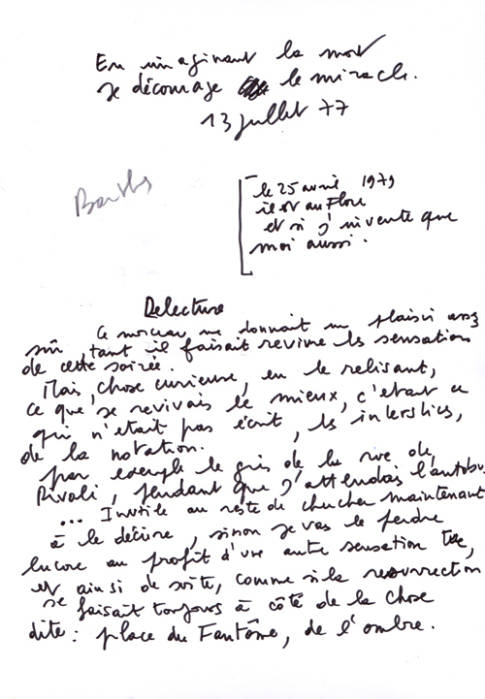 En imaginant la mort
je décourage le miracle.
13 juillet 77
Barthes
le 25 avril 1979
il est au Flore
et si j'invente que
moi aussi.
Delecture
Ce morceau me donnait un plaisir assez
sûr, tant il faisait revivre les sensations
de cette soirée.
Mais, chose curieuse, en le relisant,
ce que je revivais le mieux, c'était ce
qui n'était pas écrit, les interstices,
de la notation.
par exemple le gris de la rue de
Rivoli, pendant que j'attendais l'autobus
... Inutile au reste de chercher maintenant
à le décrire, sinon je vas le perdre
encore au profit d'une autre sensation tue,
et ainsi de suite, comme si la resurrection
se faisait toujours à côté de la chose
dite : place du Fantôme, de l'ombre.